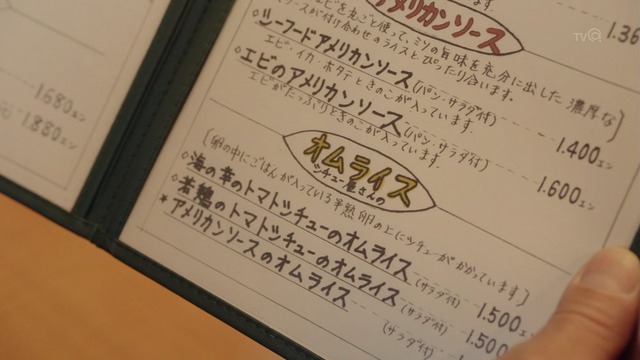 TVQ
1.680エン
1.880エン
アメリカンソース
1.36
エビを丸ごと使って、ミソの旨味を充分に出した濃厚な
ソースが付け合わせのライスとぴったり合います。
◇シーフードアメリカンソース(パン・サラダ付) 1.400エン
エビ・イカ・ホタテときのこが入っています。
◇エビのアメリカンソース(パン・サラダ付) 1.600エン
エビがたっぷりときのこが入っています。
シチュー屋さんの
オムライス
〔卵の中にごはんが入っている半熟卵の上にシチューがかかっています〕
◇海の幸のトマトシチューのオムライス(サラダ付) 1.500エン
◇若鶏のトマトシチューのオムライス(サラダ付) 1.500
★アメリカンソースのオムライス(サラダ付)